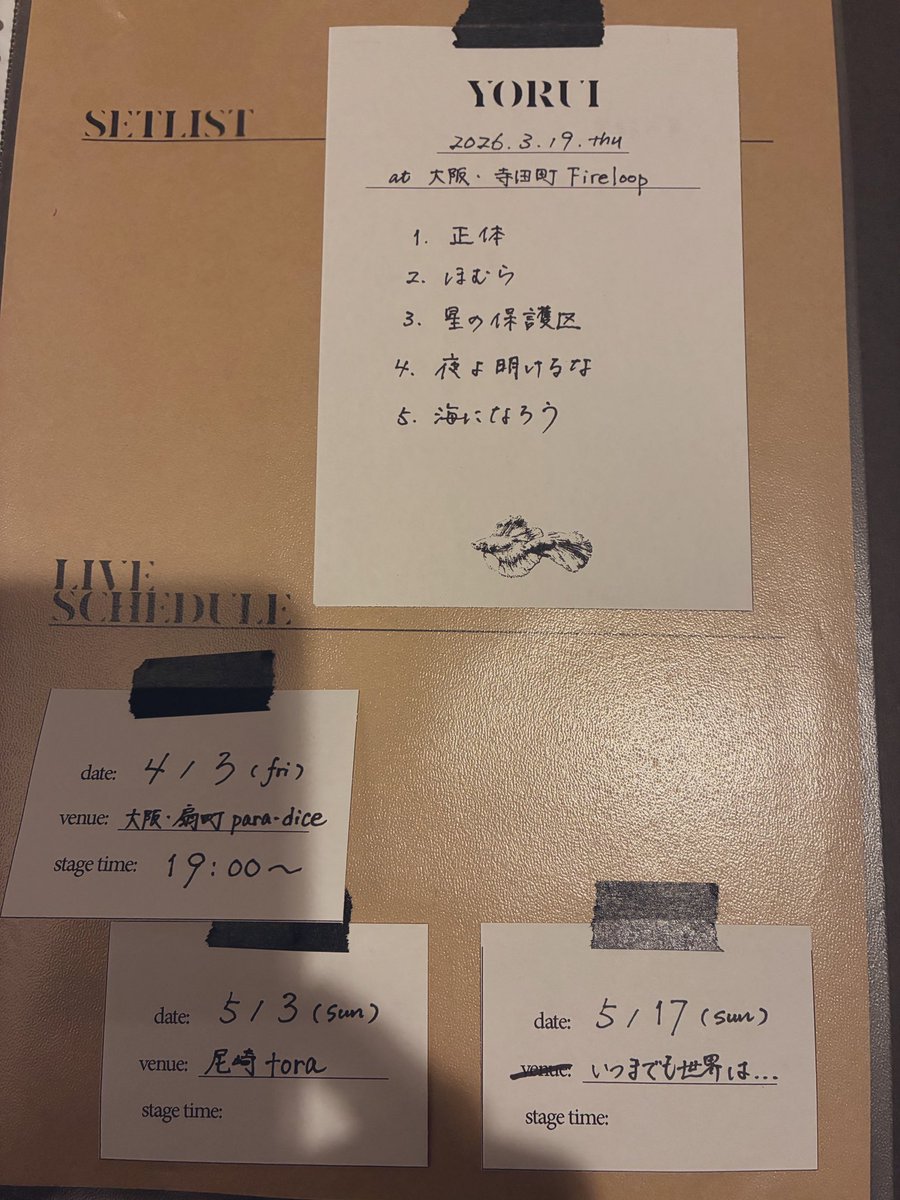 SETLIST
YORUI
2026.3.19.thu
at 大阪・寺田町 Fireloop
1. 正体
2. ほむら
3. 星の保護区
4. 夜よ明けるな
5. 海になろう
LIVE
SCHEDULE
date: 4/3(fri)
venue: 大阪・扇町 para-dice
stage time: 19:00〜
date: 5/3(sun)
venue: 尼崎 tora
stage time:
date: 5/17(sun)
venue: いつまでも世界は...
stage time: